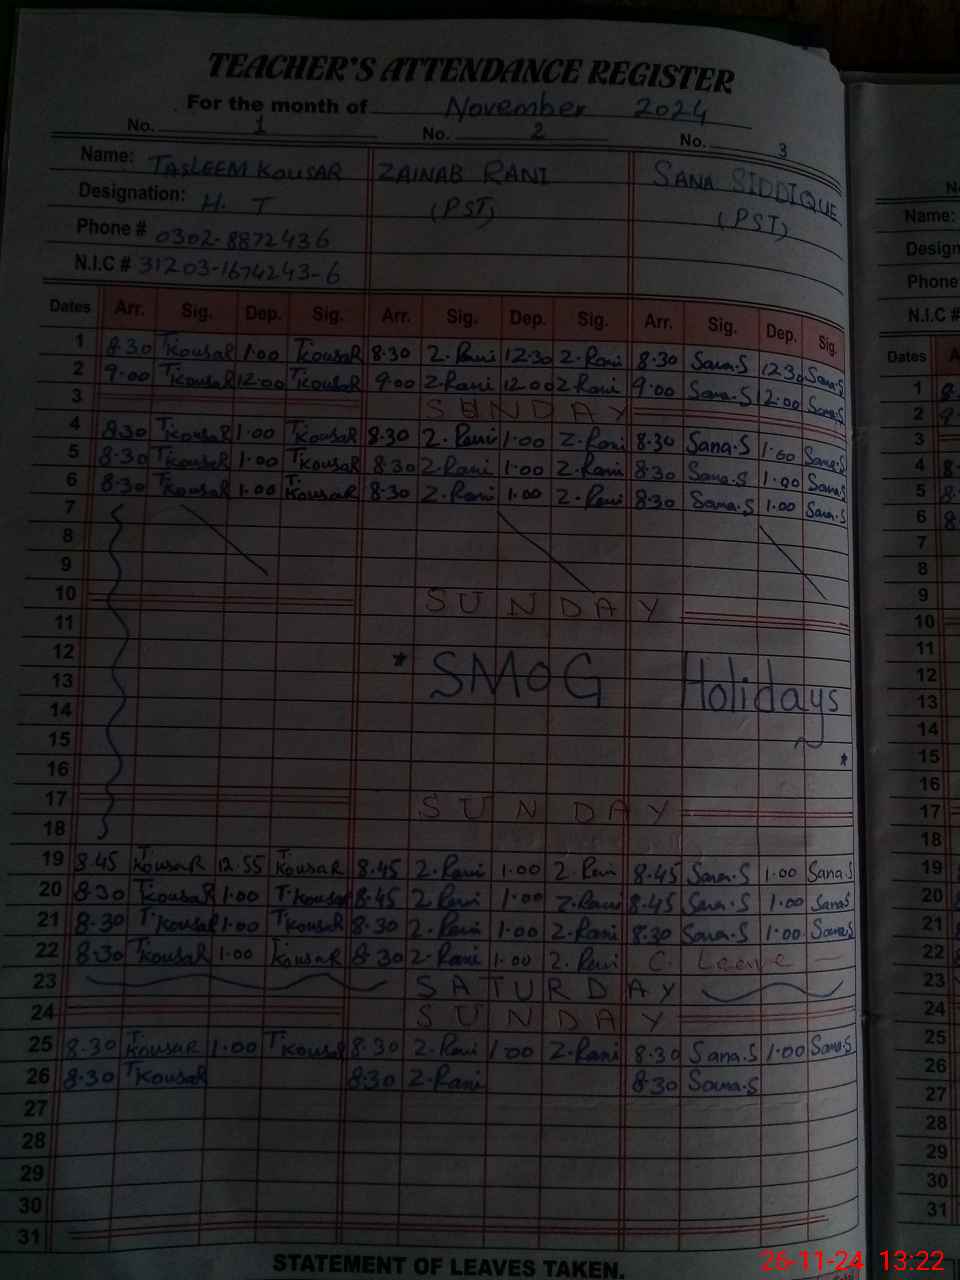 TEACHER'S ATTENDANCE REGISTER
For the month of November 2024
No. 1 No. 2 No. 3
Name: TASLEEM KOUSAR ZAINAB RANI SANA SIDDIQUE
Designation: H. T (PST) (PST)
Phone # 0302-8872436
N.I.C # 31203-1674243-6
Dates Arr. Sig. Dep. Sig. Arr. Sig. Dep. Sig. Arr. Sig. Dep. Sig.
1 8.30 TkousaR 1.00 TkousaR 8.30 Z.Rani 12.30 Z.Rani 8.30 Sana.S 12.30 Sana.S
2 9.00 TkousaR 12.00 TkousaR 9.00 Z.Rani 12.00 Z.Rani 9.00 Sana.S 2.00 Sana.S
3 SUNDAY
4 8.30 TkousaR 1.00 TkousaR 8.30 Z.Rani 1.00 Z.Rani 8.30 Sana.S 1.00 Sana.S
5 8.30 TkousaR 1.00 TkousaR 8.30 Z.Rani 1.00 Z.Rani 8.30 Sana.S 1.00 Sana.S
6 8.30 TkousaR 1.00 TkousaR 8.30 Z.Rani 1.00 Z.Rani 8.30 Sana.S 1.00 Sana.S
7
8
9
10 SUNDAY
11
12 * SMOG Holidays *
13
14
15
16
17 SUNDAY
18
19 8.45 TkousaR 12.55 TkousaR 8.45 Z.Rani 1.00 Z.Rani 8.45 Sana.S 1.00 Sana.S
20 8.30 TkousaR 1.00 T.kousaR 8.45 Z.Rani 1.00 Z.Rani 8.45 Sana.S 1.00 Sana.S
21 8.30 T.kousaR 1.00 TkousaR 8.30 Z.Rani 1.00 Z.Rani 8.30 Sana.S 1.00 Sana.S
22 8.30 TkousaR 1.00 TkousaR 8.30 Z.Rani 1.00 Z.Rani C. Leave
23 SATURDAY
24 SUNDAY
25 8.30 TkousaR 1.00 TkousaR 8.30 Z.Rani 1.00 Z.Rani 8.30 Sana.S 1.00 Sana.S
26 8.30 TkousaR 8.30 Z.Rani 8.30 Sana.S
27
28
29
30
31
STATEMENT OF LEAVES TAKEN.
Name:
Phone
N.I.C #
Dates
1
2
3
4
5
6
7
8
9
10
11
12
13
14
15
16
17
18
19
20
21
22
23
24
25
26
27
28
29
30
31
26-11-24 13:22